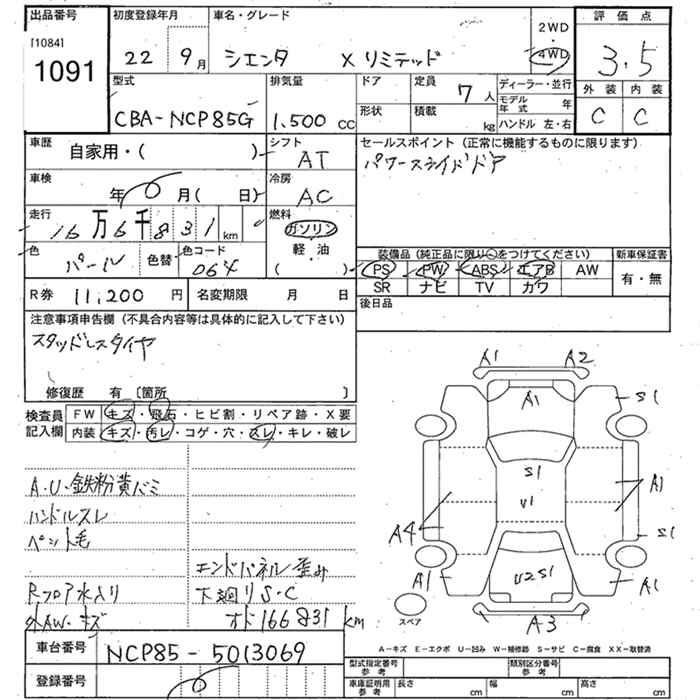 出品番号 初度登録年月 車名・グレード 2WD 評価点
[1084] 22 9月 シエンタ X リミテッド ・ 3.5
1091 4WD
外装 内装
型式 排気量 ドア 定員 7人 ディーラー・並行 C C
CBA-NCP85G 1,500 cc 形状 積載 kg モデル年式 年
ハンドル 左・右
車歴 自家用・( ) シフト AT セールスポイント (正常に機能するものに限ります)
パワースライドドア
車検 年 0 月 ( 日) 冷房 AC
走行 16万6千831km 燃料 ガソリン
軽・油
( )
色 パール 色替 色コード 064
装備品 (純正品に限り○をつけてください) 新車保証書
PS PW ABS エアB AW 有・無
SR ナビ TV カワ
R券 11,200円 名変期限 月 日 後日品
注意事項申告欄 (不具合内容等は具体的に記入して下さい)
スタッドレスタイヤ
修復歴 有 〔箇所 〕
検査員 FW キズ・飛石・ヒビ割・リペア跡・X要
記入欄 内装 キズ・汚レ・コゲ・穴・スレ・キレ・破レ
A1 A2
A1 S1
S1 A1
V1
S1
A4
A1 U2S1 A1
A3
スペア
A・U・鉄粉黄バミ
ハンドルスレ
ペット毛
エンドパネル歪み
Rフロア水入り 下廻りS・C
外AW・キズ オド166831km
A-キズ E-エクボ U-凹み W-補修跡 S-サビ C-腐食 XX-取替済
車台番号 NCP85-5013069
型式指定番号 参考 類別区分番号 参考
登録番号 車庫証明用 参考 長さ cm 幅 cm 高さ cm